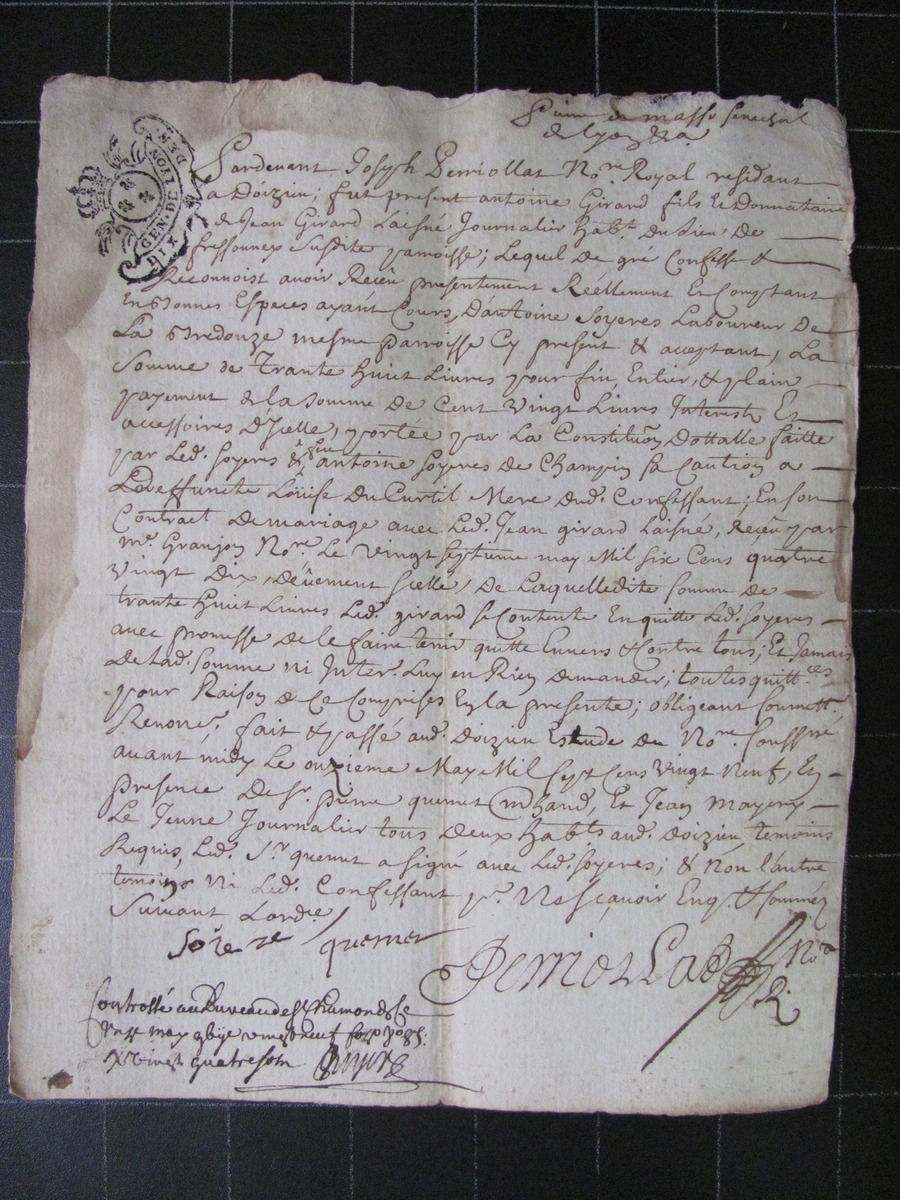 GEN. DE LYON
DIX DEN.
de Lyon &a
Pardevant Joseph Perriollat No.re Royal residant
a Doizieu; fut present antoine Girard fils Et Donnataire
de Jean Girard Laisné Journalier hab.t Du Lieu De
fressonnex Susdite parroisse; Lequel De gré Confesse &
Reconnoist avoir Receu presentement Réellement Et Comptant
En Bonnes Especes ayant Cours, D'antoine Soyeres Laboureur De
La Bredouze mesme parroisse Cy present & acceptant, La
Somme de Trante huit Livres pour fin, Entier, & plain
payement de la somme De Cent Vingt Livres Interests Et
accessoires D'Icelle, portée par La Constitu[ti]on Dottalle faitte
par Led. Soyeres & feu antoine Soyeres de Champin sa Caution a
Louise Du Curtil Mere dud. Confessant; En son
Contract De mariage avec Led. Jean girard Laisné, Receu par
m.e Granjon No.re Le Vingt Septieme may Mil six Cens quatre
Vingt Dix, Deuement scellé, De Laquelle dite somme de
trante huit Livres Led. girard se Contente En quitte Led. Soyeres
avec promesse De le faire tenir quitte Envers & Contre tous; Et Jamais
De lad. somme ni Inter. Luy en Rien demander; toutes quitt.ces
pour Raison de Ce Comprises En la presente; obligeant soumett.
Renonc. fait & passé aud. Doizieu Estude du No.re soussigné
avant midy Le onzieme May Mil sept Cens Vingt Neuf, En
presence De Sr. pierre quemet march[and], Et Jean mayery
Le Jeune Journalier tous Deux hab.ts aud. Doizieu temoins
Requis, Led. S.r quemet a signé avec Led. Soyeres; & Non L'autre
temoins Ni Led. Confessant p.r Ne sçavoir Enq. & sommés
Suivant Lordre
Soyere quemet
Perriollat No.re R.
Controllé au Bureau de St Chamond Ce
vingt quatre sols